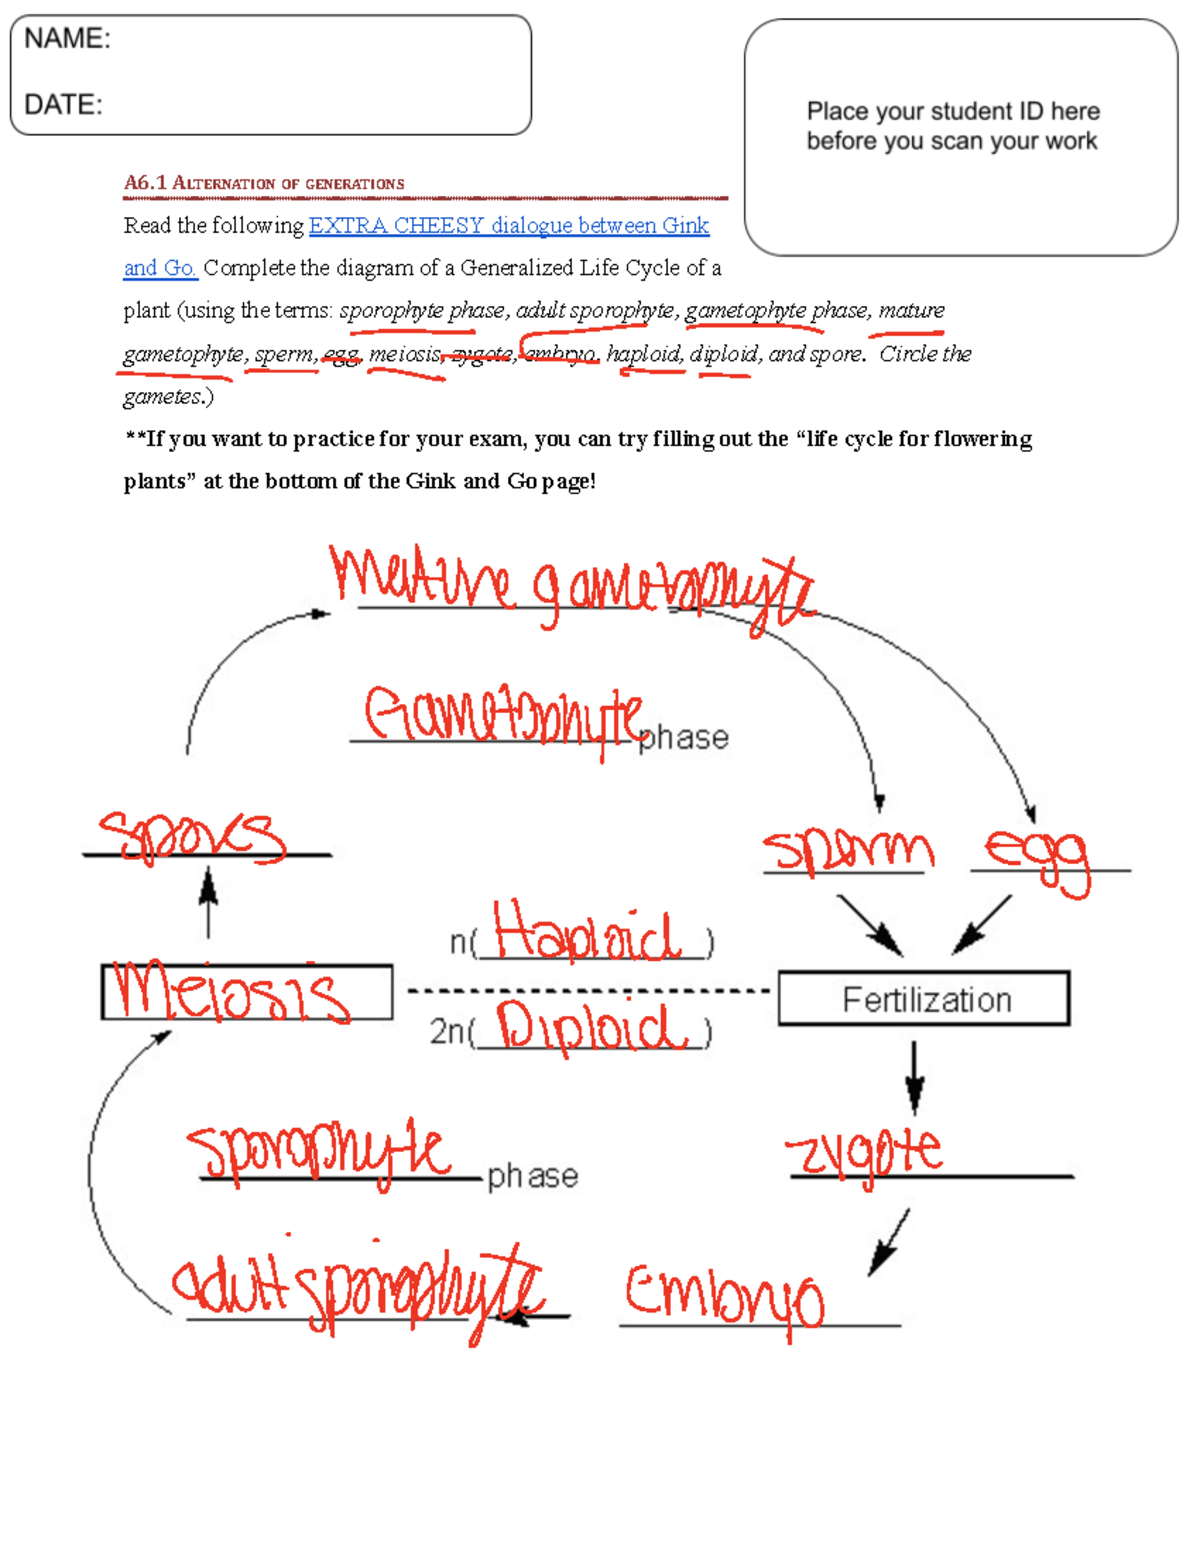 NAME:
DATE:
Place your student ID here
before you scan your work
A6.1 ALTERNATION OF GENERATIONS
Read the following EXTRA CHEESY dialogue between Gink
and Go. Complete the diagram of a Generalized Life Cycle of a
plant (using the terms: sporophyte phase, adult sporophyte, gametophyte phase, mature
gametophyte, sperm, egg, meiosis, zygote, embryo, haploid, diploid, and spore. Circle the
gametes.)
**If you want to practice for your exam, you can try filling out the “life cycle for flowering
plants” at the bottom of the Gink and Go page!
Mature gametophyte
Gametophyte phase
spores
sperm egg
n( Haploid )
Meiosis
Fertilization
2n( Diploid )
sporophyte phase
zygote
adult sporophyte
Embryo